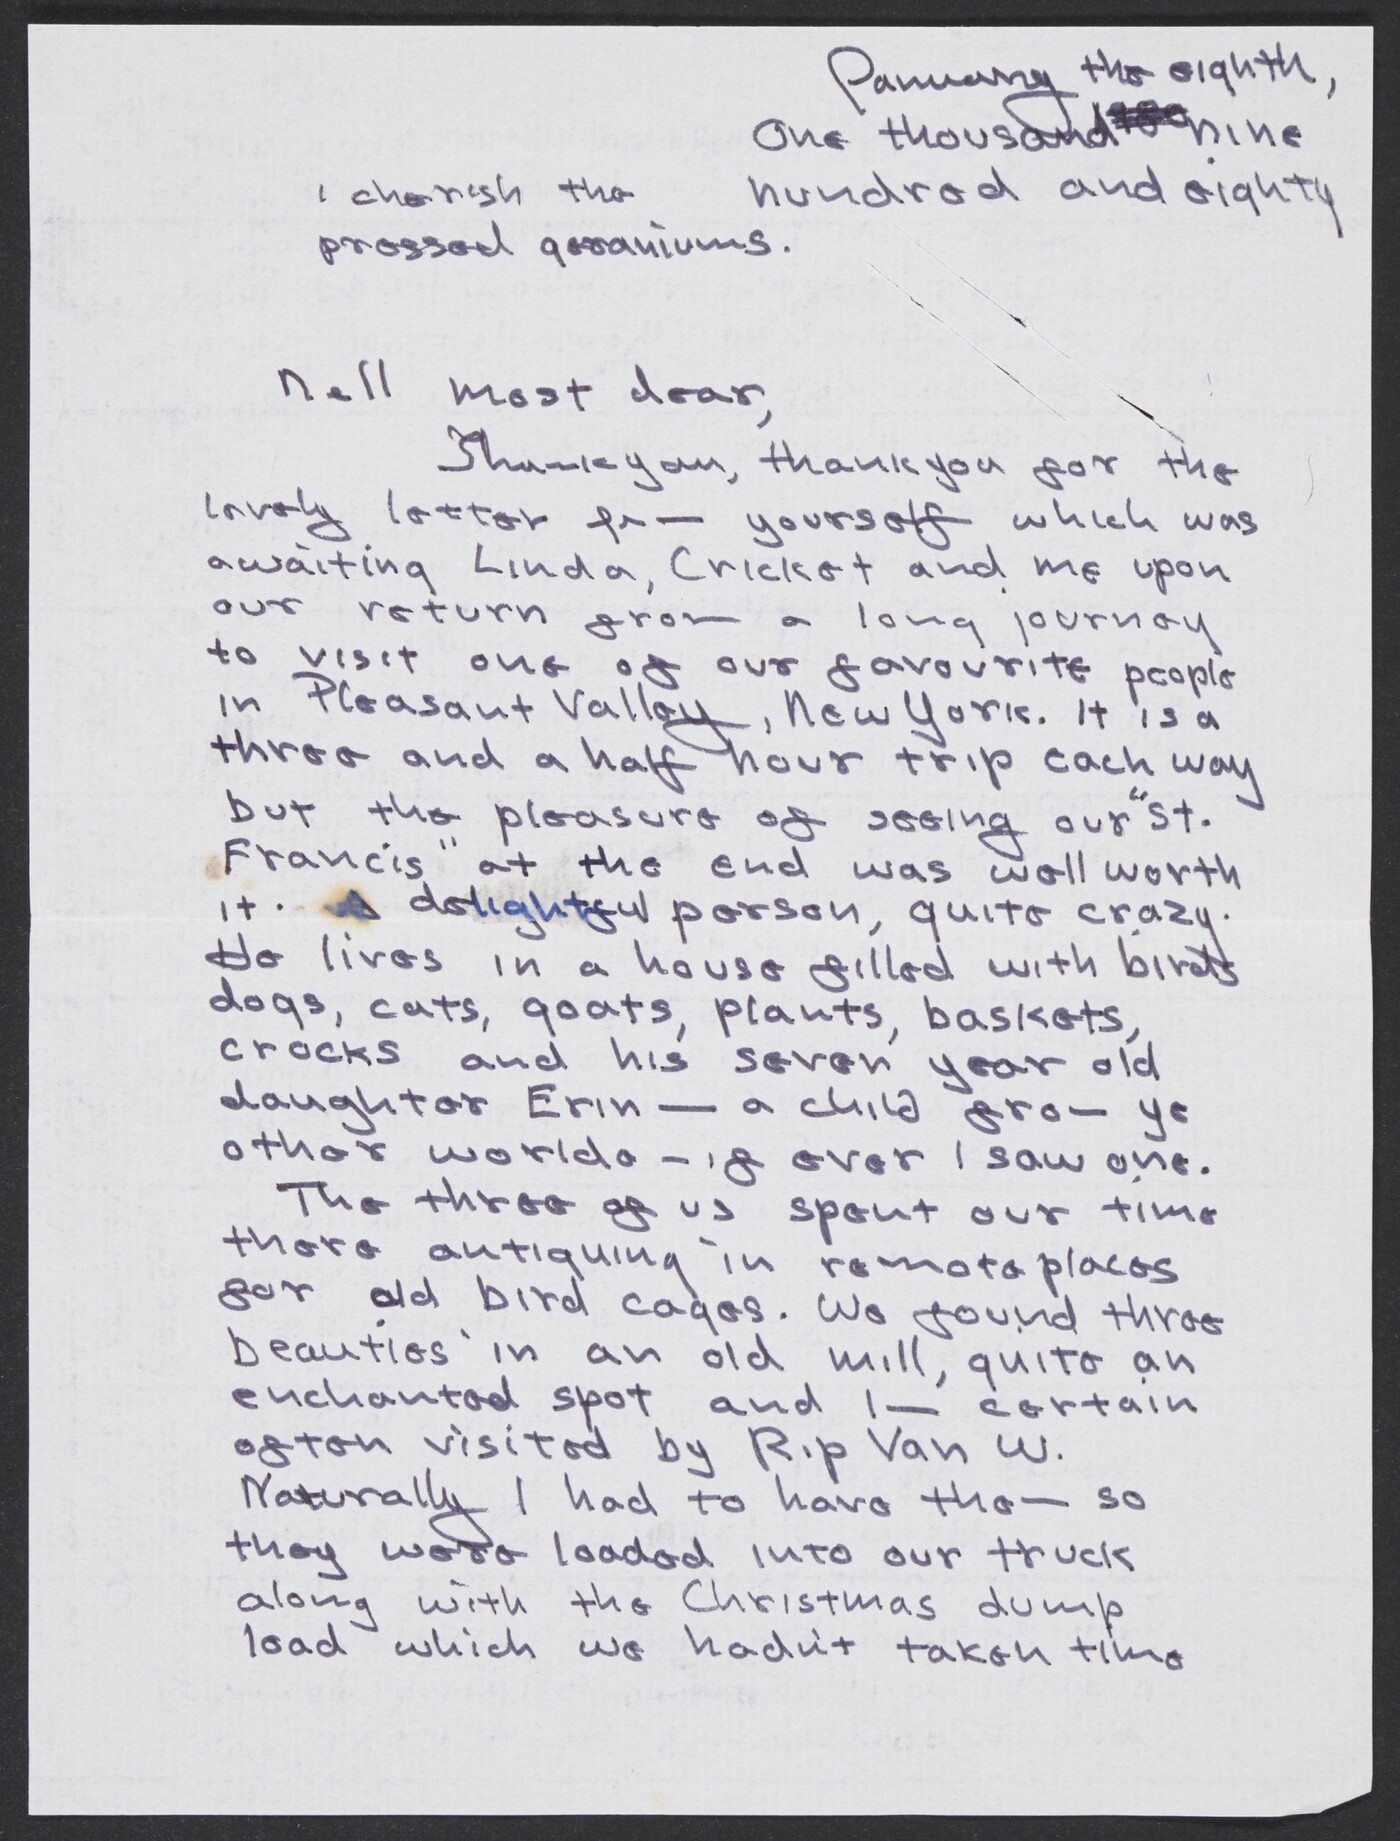 January the eighth,
One thousand nine
hundred and eighty
I cherish the
pressed geraniums.
Nell most dear,
Thank you, thank you for the
lovely letter from yourself which was
awaiting Linda, Cricket and me upon
our return from a long journey
to visit one of our favourite people
in Pleasant Valley, New York. It is a
three and a half hour trip each way
but the pleasure of seeing our "St.
Francis" at the end was well worth
it. A delightful person, quite crazy.
He lives in a house filled with birds
dogs, cats, goats, plants, baskets,
crocks and his seven year old
daughter Erin — a child from ye
other worlde - if ever I saw one.
The three of us spent our time
there antiquing in remote places
for old bird cages. We found three
beauties in an old mill, quite an
enchanted spot and I'm certain
often visited by Rip Van W.
Naturally I had to have them so
they were loaded into our truck
along with the Christmas dump
load which we hadn't taken time